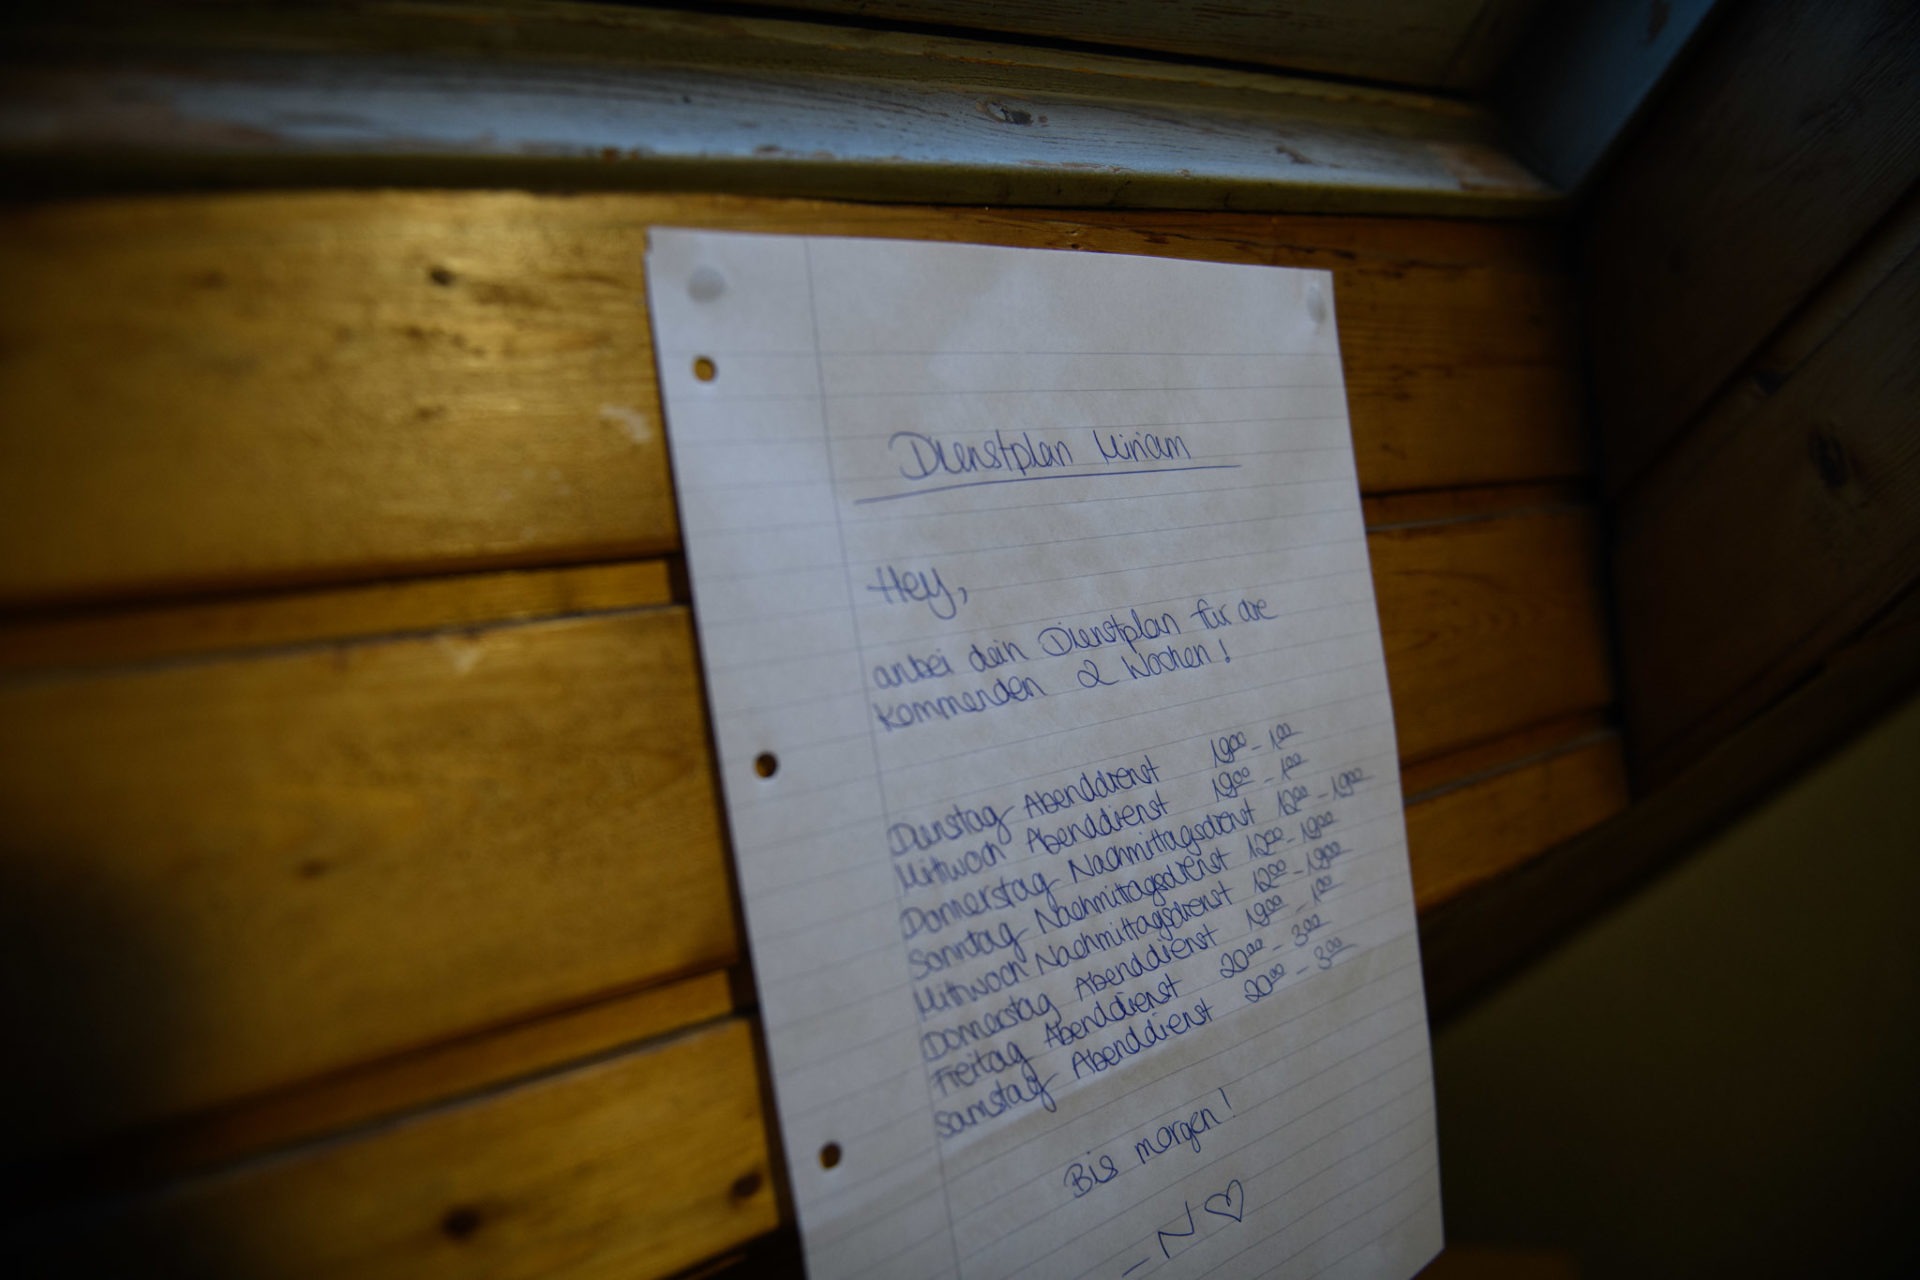 Dienstplan Miriam
Hey,
anbei dein Dienstplan für die
kommenden 2 Wochen!
Dienstag Abenddienst 19⁰⁰ - 1⁰⁰
Mittwoch Abenddienst 19⁰⁰ - 1⁰⁰
Donnerstag Nachmittagsdienst 12⁰⁰ - 19⁰⁰
Sonntag Nachmittagsdienst 12⁰⁰ - 19⁰⁰
Mittwoch Nachmittagsdienst 12⁰⁰ - 19⁰⁰
Donnerstag Abenddienst 19⁰⁰ - 1⁰⁰
Freitag Abenddienst 20⁰⁰ - 3⁰⁰
Samstag Abenddienst 20⁰⁰ - 3⁰⁰
Bis morgen!
- N ♡